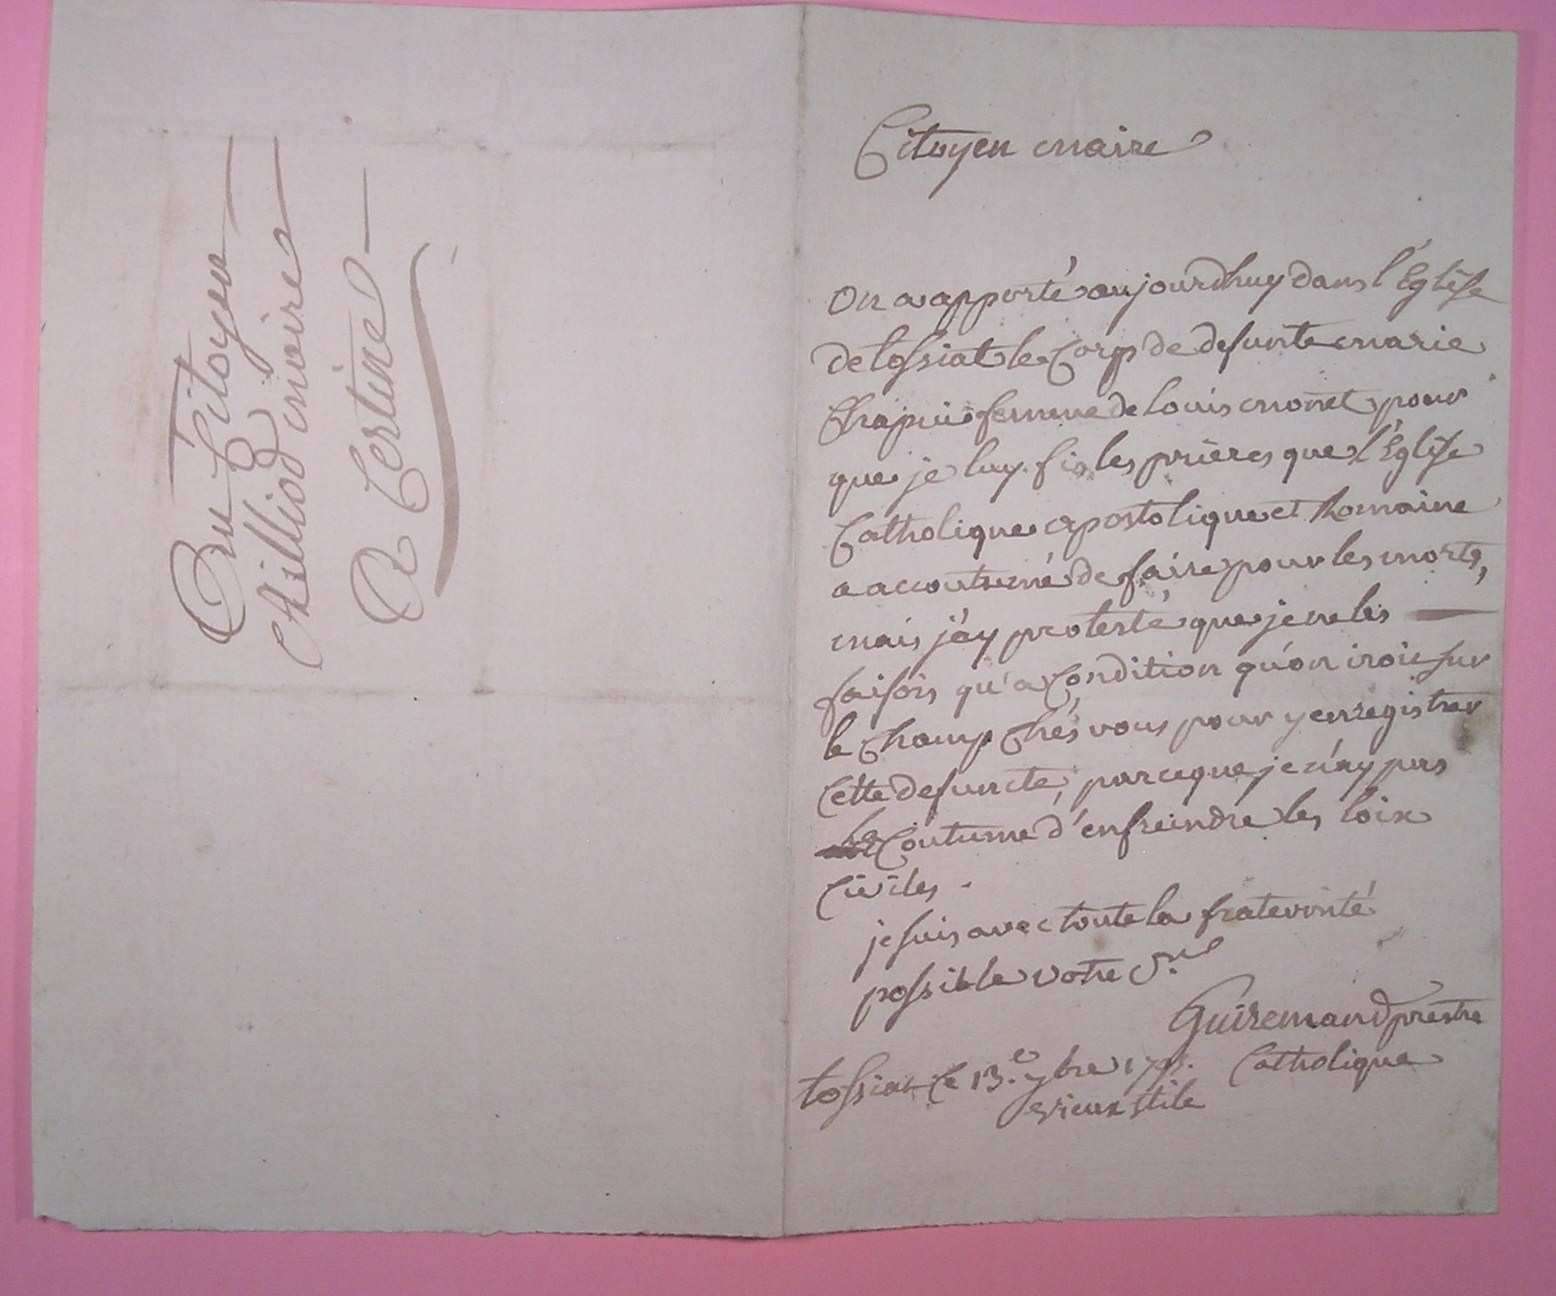 Au Citoyen
Milliod maire
A Certine
Citoyen maire
On a apporté aujourdhuy dans l'Église
de tossiat le Corps de defunte marie
Chapui femme de louis monet pour
que je luy fis les prières que l'Église
Catholique apostolique et Romaine
a accoutumé de faire pour les morts,
mais j'ay protesté que je ne les
faisois qu'a Condition qu'on iroit sur
le champ chés vous pour y enregistrer
cette defuncte, parceque je n'ay pas
la Coutume d'enfreindre les loix
Civiles.
je suis avec toute la fraternité
possible votre
Guiremand prestre
Catholique
tossiat le 13.e 7bre
vieux stile